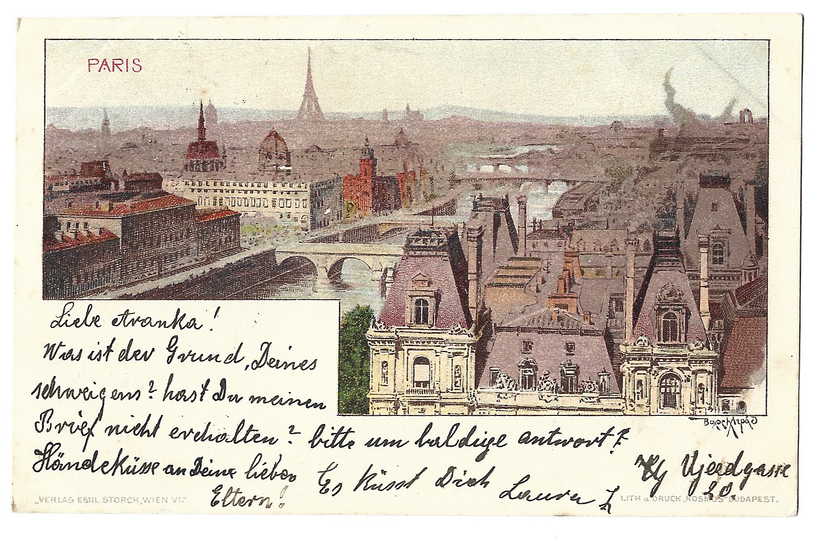 PARIS
Liebe Aranka!
Was ist der Grund, Deines
schweigens? hast Du meinen
Brief nicht erhalten? bitte um baldige antwort?
Handeküsse an Deine lieben
Eltern! Es küsst Dich Laura
20
„VERLAG EMIL STORCH, WIEN VI.“
LITH u. DRUCK „KOSMOS“ BUDAPEST.